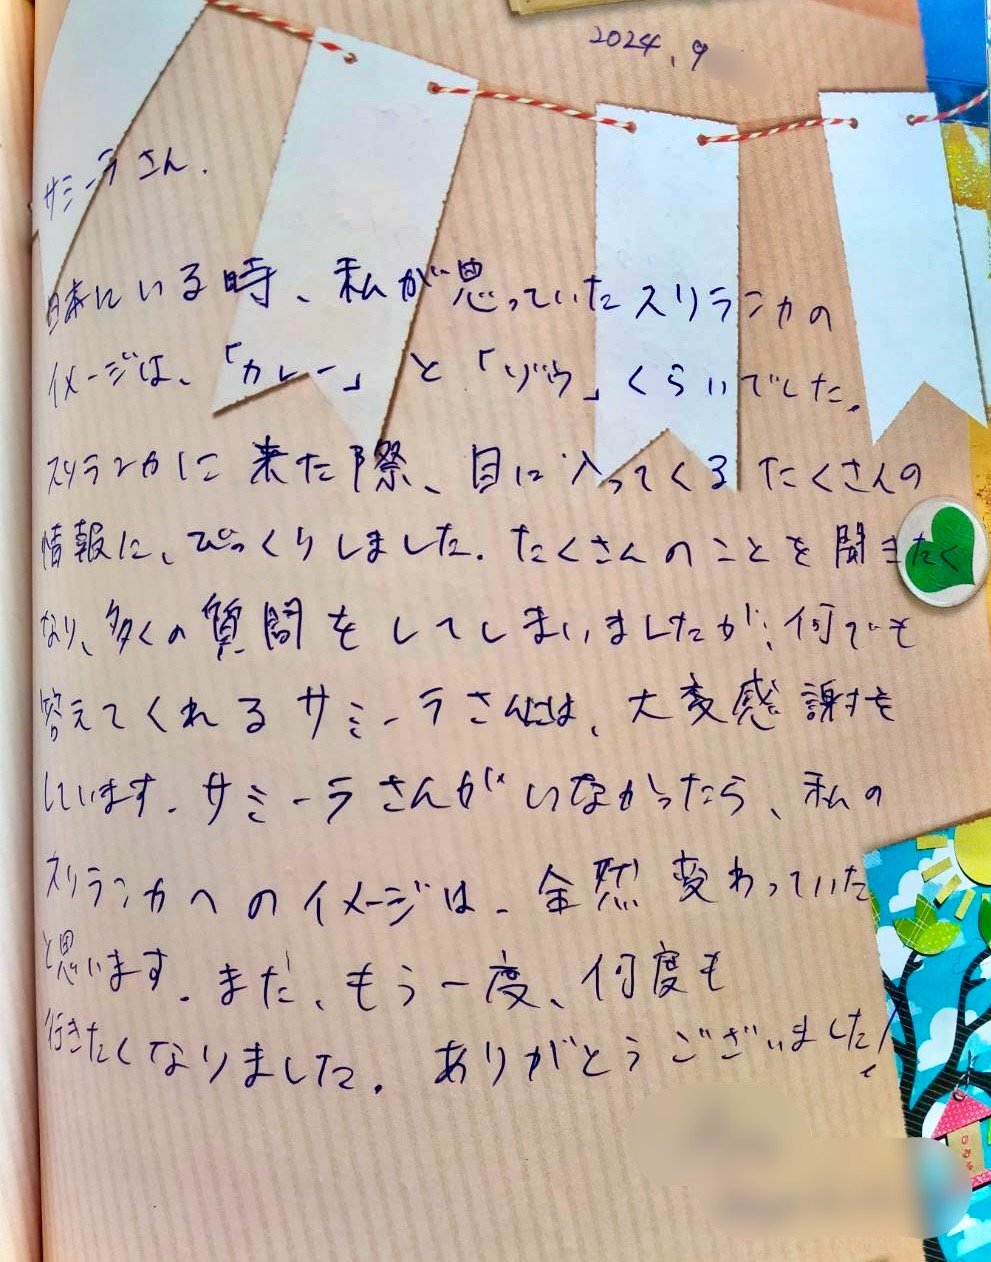 2024.9
サミーラさん.
日本にいる時、私が思っていたスリランカの
イメージは、「カレー」と「ゾウ」くらいでした。
スリランカに来た際、目に入ってくるたくさんの
情報に、びっくりしました.たくさんのことを聞きたく
なり、多くの質問をしてしまいましたが、何でも
答えてくれるサミーラさんには、大変感謝を
しています.サミーラさんがいなかったら、私の
スリランカへのイメージは、全然変わっていた
と思います.まだ、もう一度、何度も
行きたくなりました.ありがとうございました!